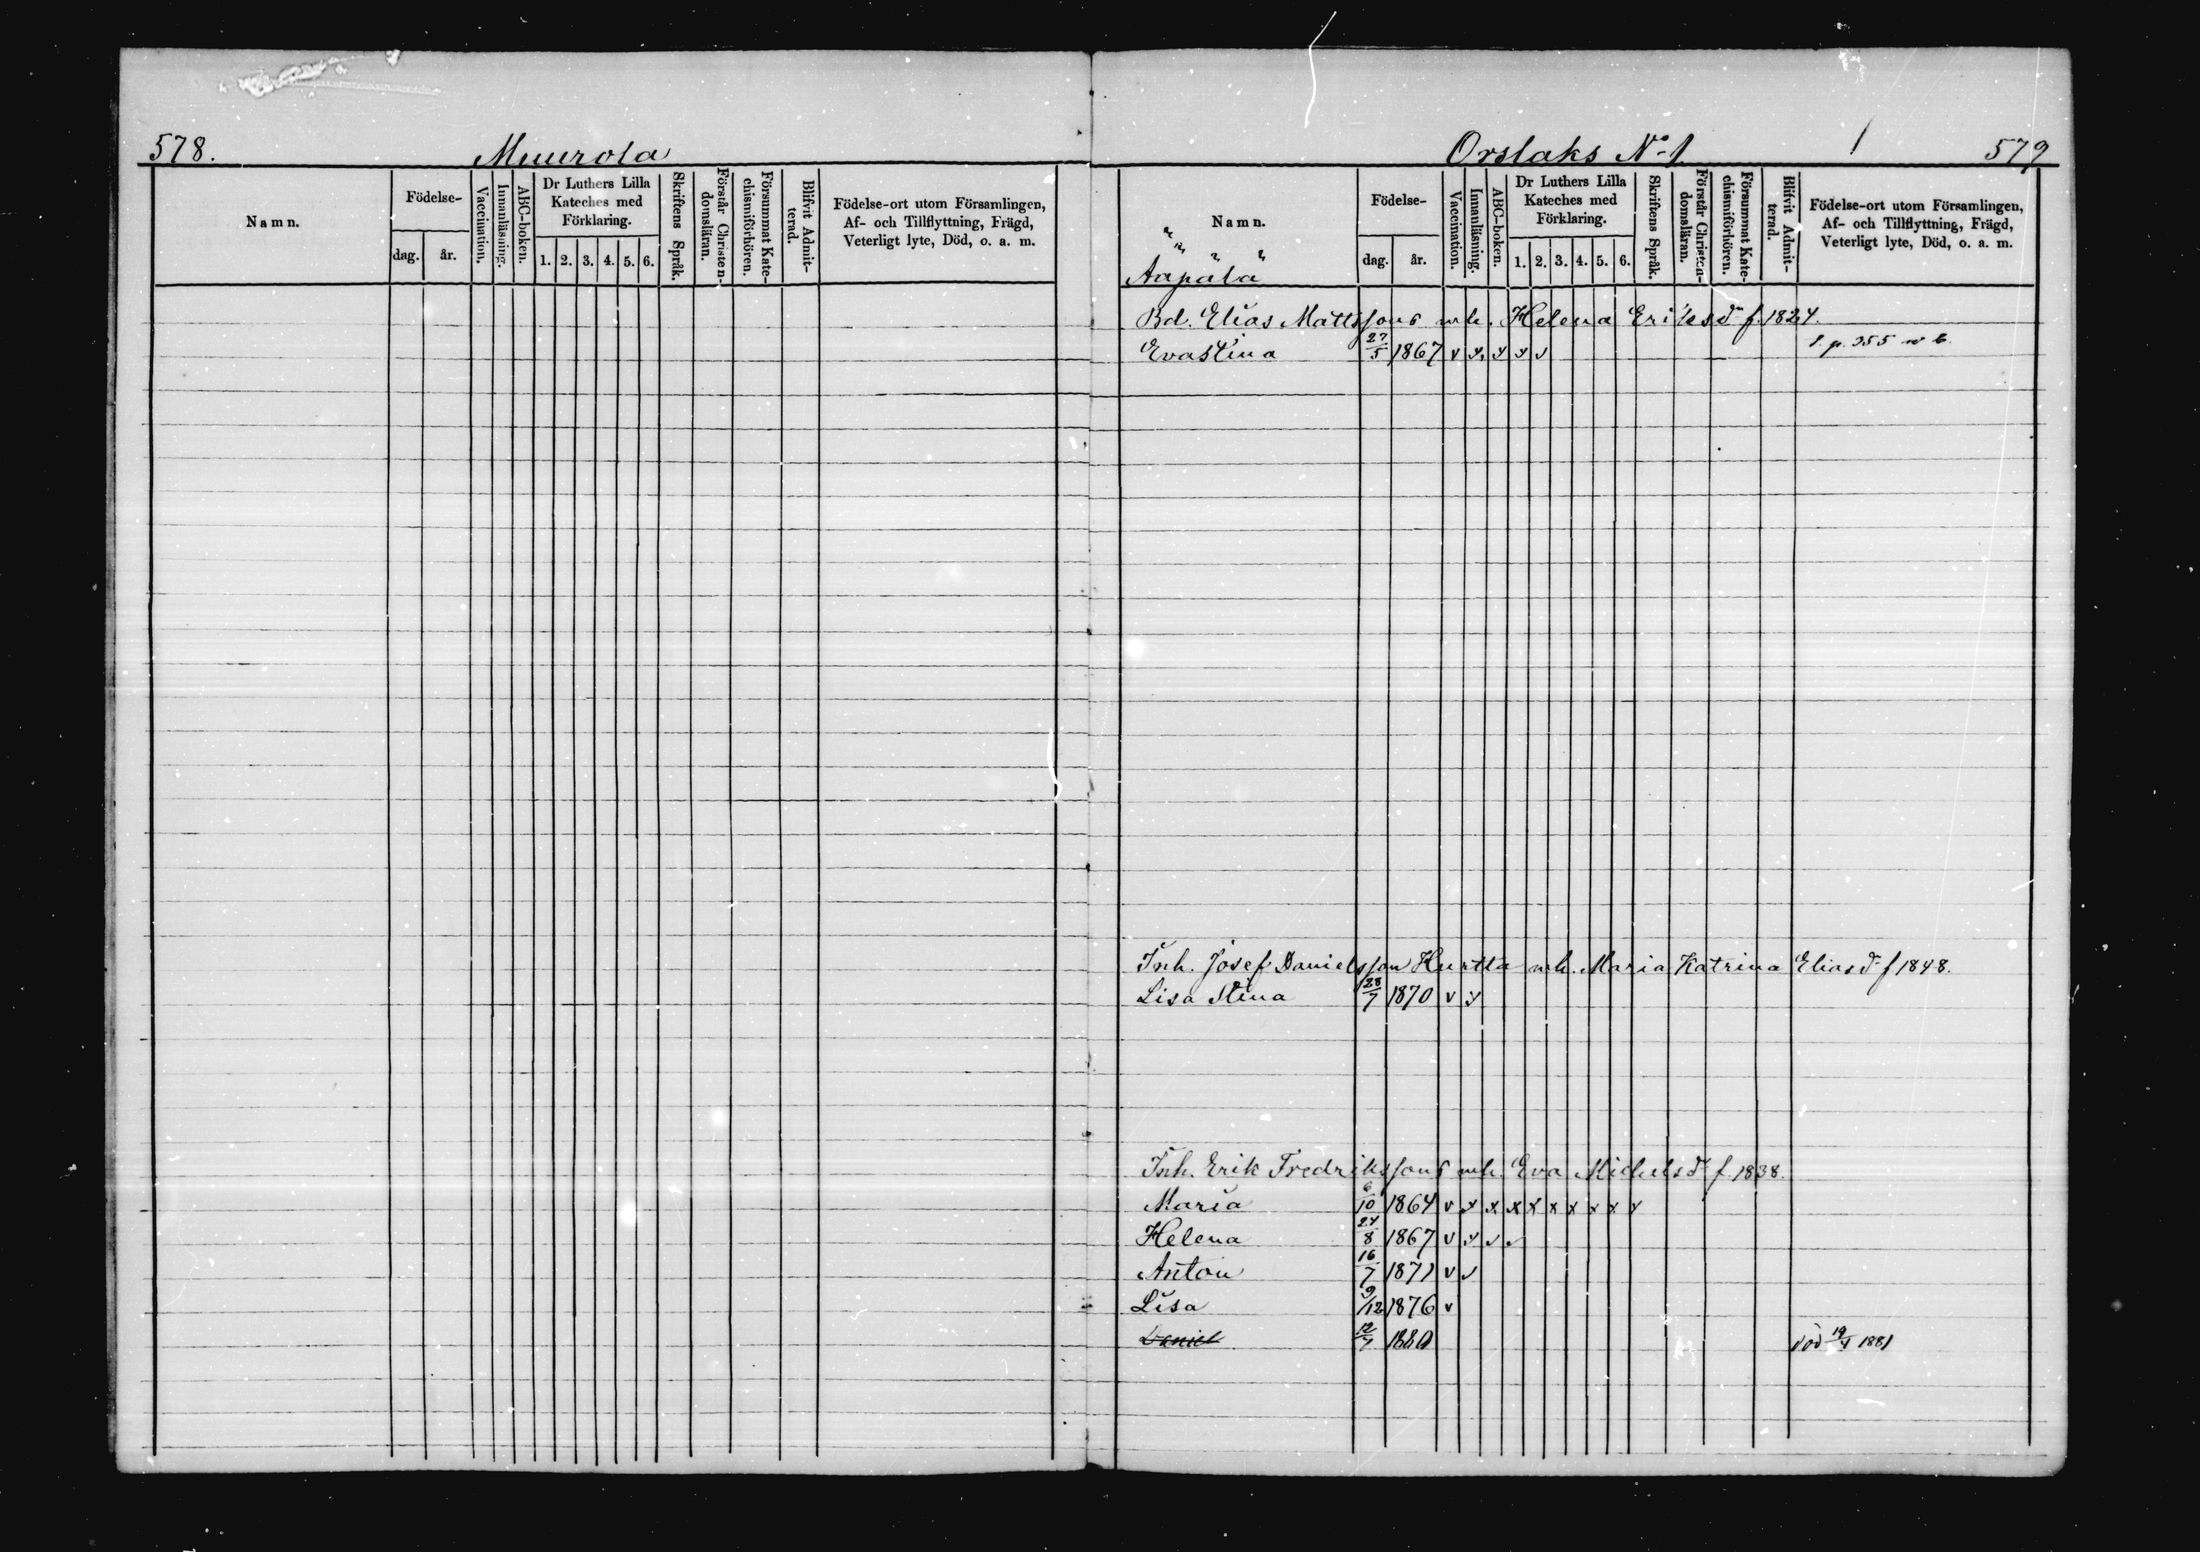 578. Muurola
Namn.
Födelse-
dag. år.
Vaccination.
Innanläsning.
ABC-boken.
Dr Luthers Lilla
Kateches med
Förklaring.
1. 2. 3. 4. 5. 6.
Skriftens Språk.
Förstår Christen-
domsläran.
Försummat Kate-
chismiförhören.
Blifvit Admit-
terad.
Födelse-ort utom Församlingen,
Af- och Tillflyttning, Frägd,
Veterligt lyte, Död, o. a. m.
Orslaks No 1. 579
Namn.
Aapala
Födelse-
dag. år.
Vaccination.
Innanläsning.
ABC-boken.
Dr Luthers Lilla
Kateches med
Förklaring.
1. 2. 3. 4. 5. 6.
Skriftens Språk.
Förstår Christen-
domsläran.
Försummat Kate-
chismiförhören.
Blifvit Admit-
terad.
Födelse-ort utom Församlingen,
Af- och Tillflyttning, Frägd,
Veterligt lyte, Död, o. a. m.
Bd. Elias Mattssons mh. Helena Eriksd f. 1824.
Evastina 27/5 1867 v v v v v p. 355
Inh. Josef Danielsson Hurtta mh. Maria Katrina Eliasd f 1848.
Lisa Stina 28/7 1870 v v
Inh. Erik Fredrikssons mh. Eva Michelsd f. 1838.
Maria 6/10 1864 v v x x x x x x x v
Helena 24/8 1867 v v v v
Anton 16/7 1871 v v
Lisa 9/12 1876 v
Daniel 12/7 1880 död 19/4 1881